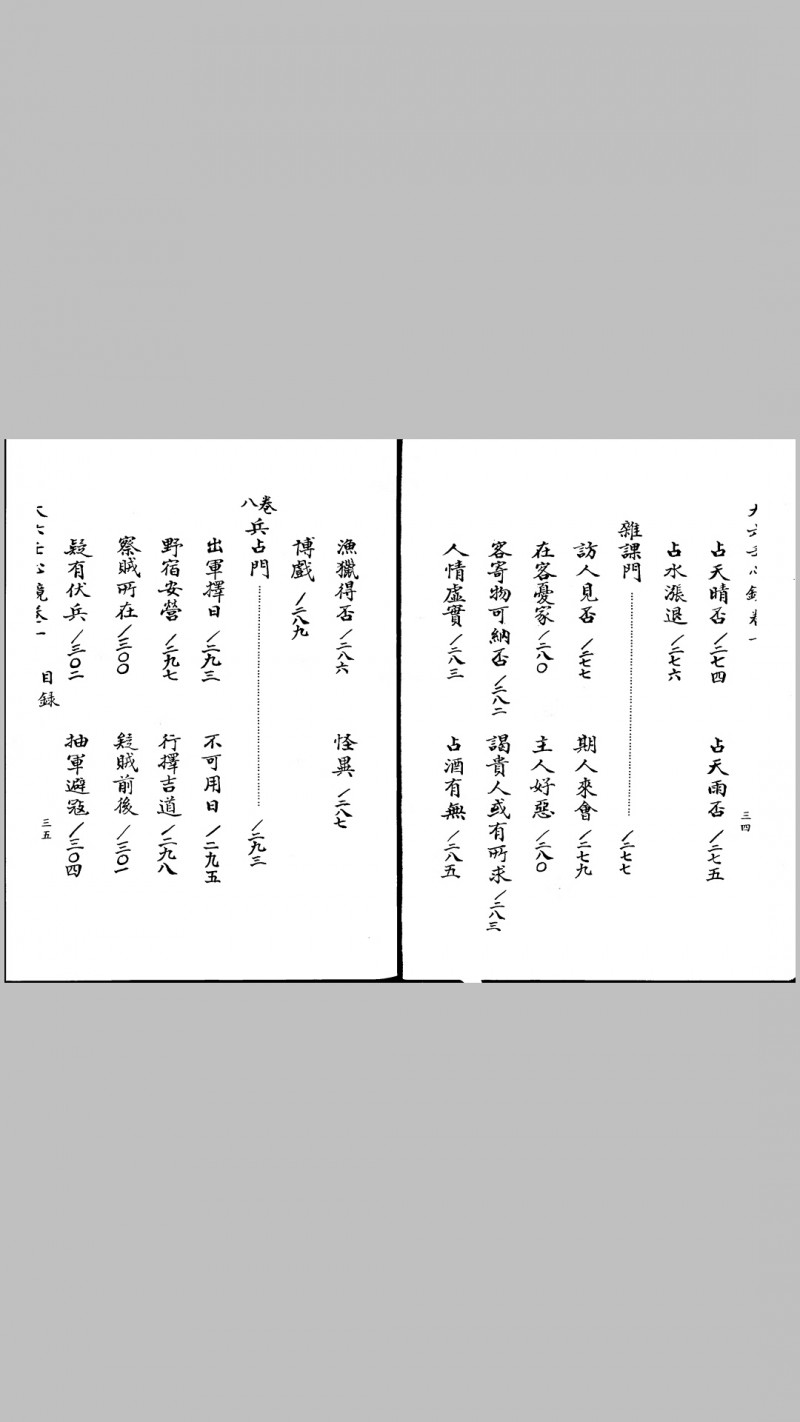 大六壬心鏡卷一
三四
占天晴否/二七四
占天雨否/二七五
占水漲退/二七六
雜課門……/二七七
訪人見否/二七七
期人來會/二七九
在客憂家/二八〇
主人好惡/二八〇
客寄物可納否/二八二
謁貴人或有所求/二八三
人情虛實/二八三
占酒有無/二八五
漁獵得否/二八六
怪異/二八七
博戲/二八九
卷八
兵占門……/二九三
出軍擇日/二九三
不可用日/二九五
野宿安營/二九七
行擇吉道/二九八
察賊所在/三〇〇
疑賊前後/三〇一
疑有伏兵/三〇二
抽軍避寇/三〇四
大六壬心鏡卷一 目錄
三五